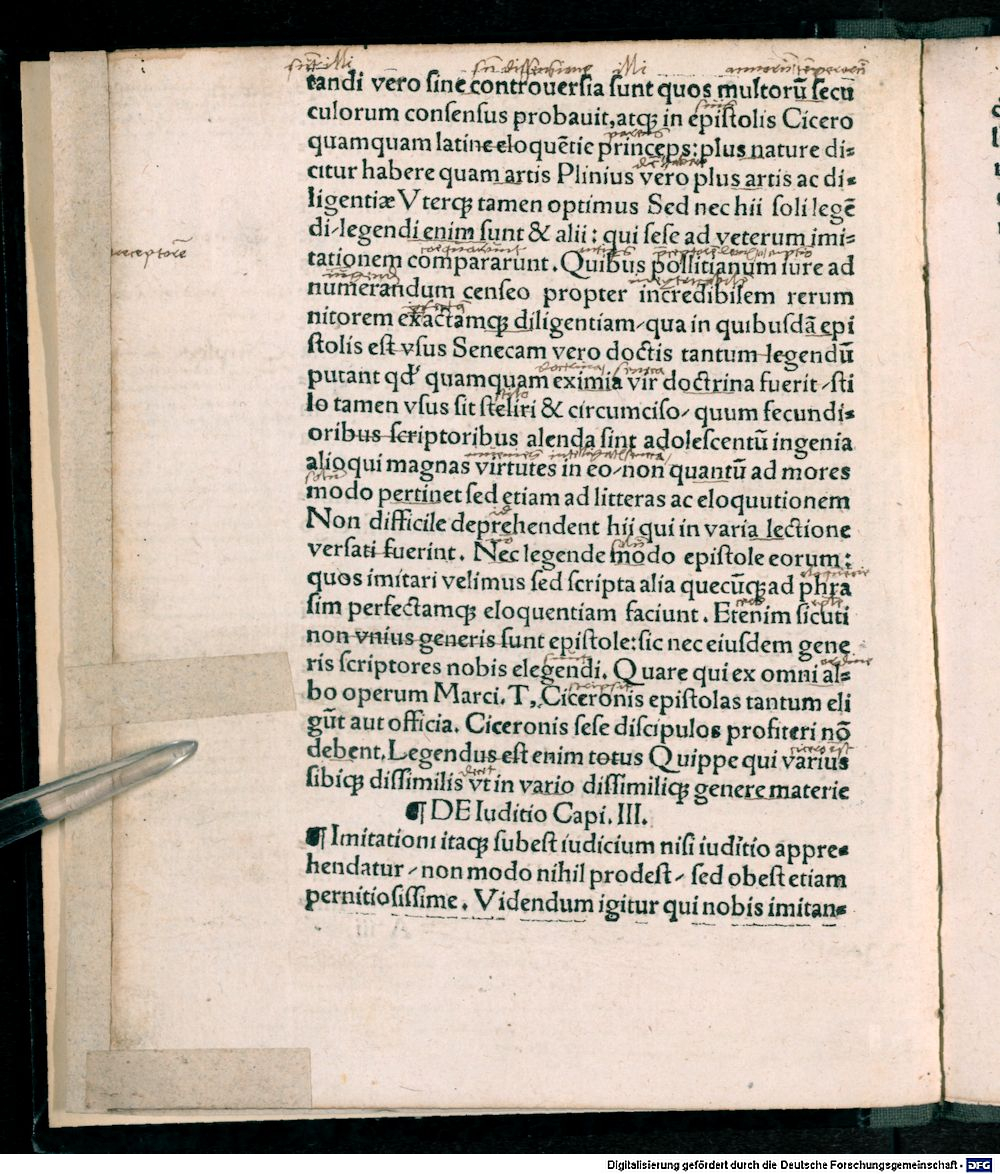 sunt illi sine dissensione illi
tandi vero sine controuersia sunt quos multorũ secũ
culorum consensus probauit,atq; in epistolis Cicero
quamquam latine eloquẽtie princeps:plus nature di⸗
citur habere quam artis Plinius vero plus artis ac di⸗
ligentiæ Vterq; tamen optimus Sed nec hii soli legẽ
di/legendi enim sunt & alii: qui sese ad veterum imi⸗
preceptorẽ
tationem compararunt. Quibus pollitianum iure ad
numerandum censeo propter incredibilem rerum
nitorem exactamq; diligentiam/qua in quibusdã epi
stolis est vsus Senecam vero doctis tantum legendũ
putant qd' quamquam eximia vir doctrina fuerit/sti
stilo
lo tamen vsus sit steliri & circumciso/ quum fecundi⸗
oribus scriptoribus alenda sint adolescentũ ingenia
alioqui magnas virtutes in eo/non quantũ ad mores
modo pertinet sed etiam ad litteras ac eloquutionem
id
Non difficile deprehendent hii qui in varia lectione
versati fuerint. Nec legende modo epistole eorum:
quos imitari velimus sed scripta alia quecũq; ad phra
sim perfectamq; eloquentiam faciunt. Etenim sicuti
non vnius generis sunt epistole:sic nec eiusdem gene
ris scriptores nobis elegendi. Quare qui ex omni al⸗
scripsit
bo operum Marci. T,. Ciceronis epistolas tantum eli
gũt aut officia. Ciceronis sese discipulos profiteri nõ
cicero est
debent. Legendus est enim totus Quippe qui varius
sibiq; dissimilis vt in vario dissimiliq; genere materie
¶ DE Iuditio Capi. III.
¶ Imitationi itaq; subest iudicium nisi iuditio appre⸗
hendatur/non modo nihil prodest/ sed obest etiam
pernitiosissime. Videndum igitur qui nobis imitan⸗
Digitalisierung gefördert durch die Deutsche Forschungsgemeinschaft - DFG